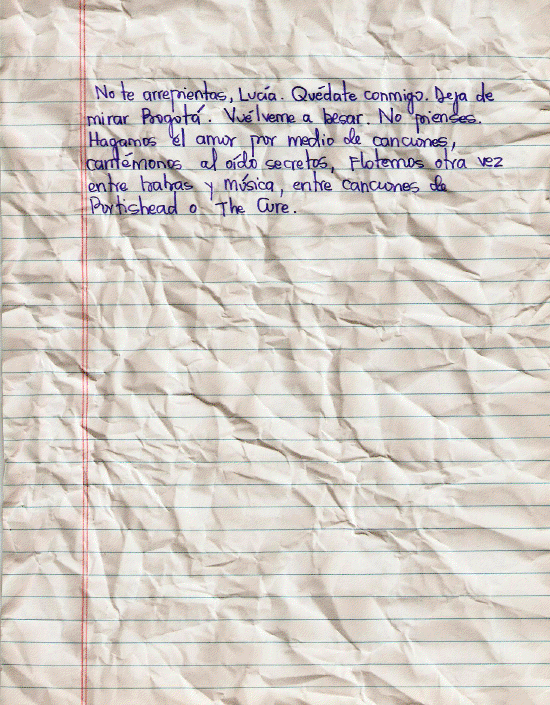 No te arrepientas, Lucía. Quédate conmigo. Deja de
mirar Bogotá. Vuélveme a besar. No pienses.
Hagamos el amor por medio de canciones,
cantémonos al oído secretos, Flotemos otra vez
entre trabas y música, entre canciones de
Portishead o The Cure.